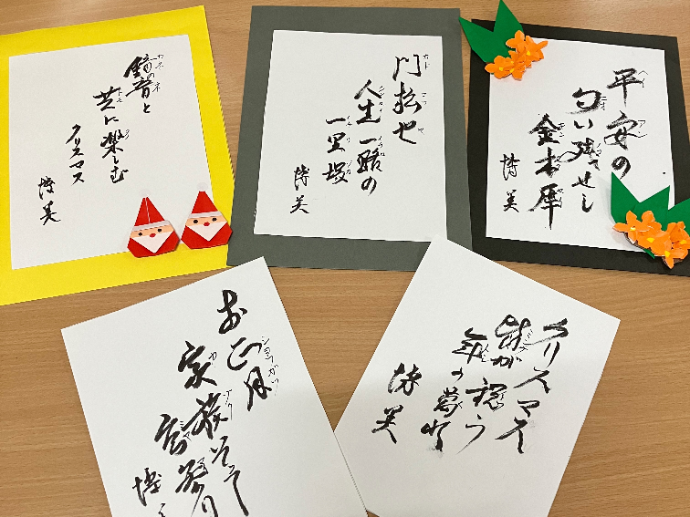 鐘音と
共に楽しむ
クリスマス
博美
門松や
人生一路の
一里塚
博美
平安の
匂い残せし
金木犀
博美
お正月
家族そろって
参り
博
クリスマス
皆が祝う
年の暮れ
博美